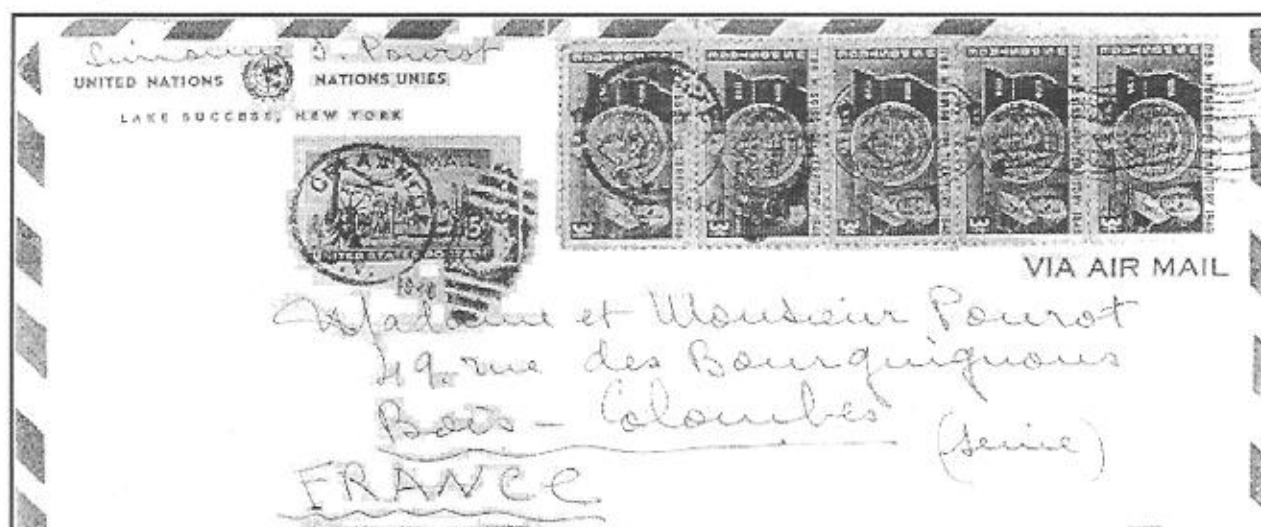 Simonne J. Pourot
UNITED NATIONS NATIONS UNIES
LAKE SUCCESS, NEW YORK
MAIL
5
UNITED STATES POSTAGE
N.Y.
1948
3¢ 3¢ 3¢ 3¢ 3¢
VIA AIR MAIL
Madame et Monsieur Pourot
49. rue des Bourguignons
Bois - Colombes (Seine)
FRANCE